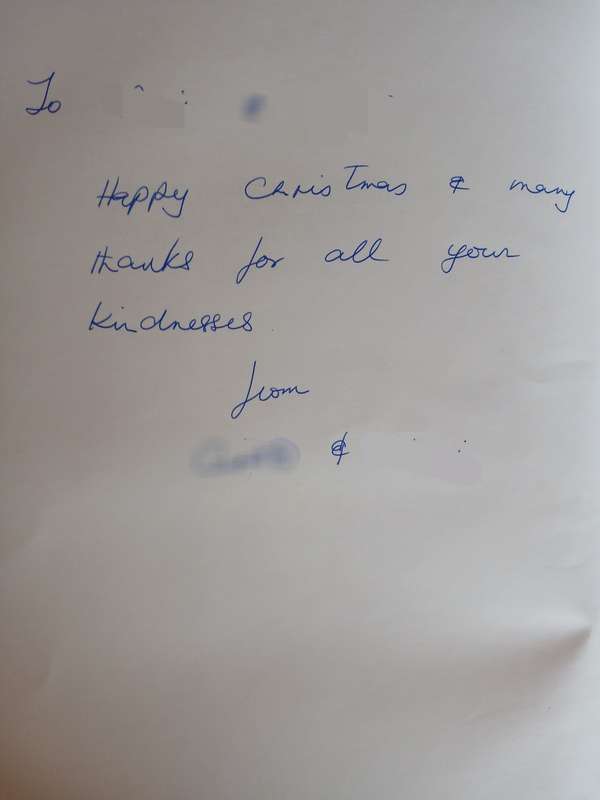 To
Happy Christmas & many
thanks for all your
kindnesses.
from
&